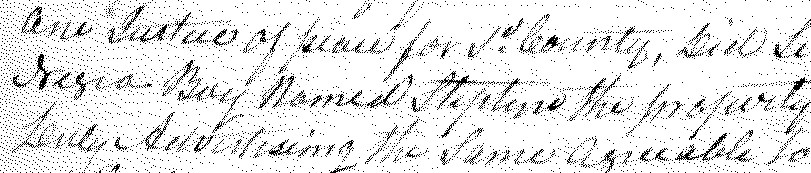 one Justice of peace for Sd County, Did Se
Negro Boy Named Stephen the property
Duly Advertising the Same agreeable to